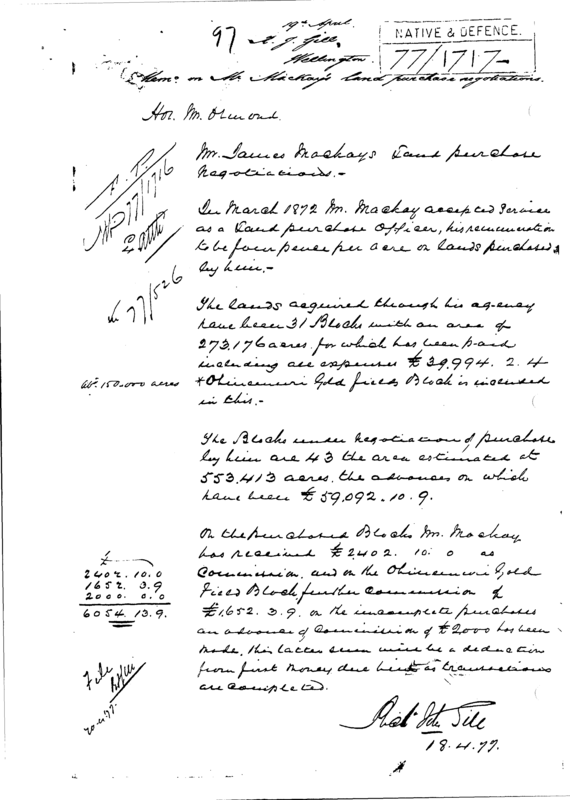 97
19th April
R. J. Gill,
Wellington.
NATIVE & DEFENCE.
77/1717
Memo on Mr Mackay's land purchase negotiations.
Hon. Mr. Ormond.
Mr. James Mackays Land purchase
Negotiations.-
77/1716
In March 1872 Mr. Mackay accepted service
as a Land purchase Officer, his remuneration
to be four pence per acre on lands purchased
by him.-
77/526
The lands acquired through his agency
have been 31 Blocks with an area of
273,176 acres for which has been paid
including all expenses £39,994. 2. 4
abt 150.000 acres
+ Ohinemuri Gold fields Block is included
in this.-
The Blocks under negotiation of purchase
by him are 43 the area estimated at
553,413 acres. the advances on which
have been £59,092.10.9.
On the purchased Blocks Mr. Mackay
has received £2402. 10. 0 as
Commission, and on the Ohinemuri Gold
Field Block further Commission of
£1,652. 3.9. on the incomplete purchases
an advance of Commission of £2000 has been
made, this latter sum will be a deduction
from first money due him as transactions
are completed.
£
2402. 10.0
1652. 3.9
2000. 0.0
6054. 13.9.
File
20.4.77.
Richd John Gill
18.4.77.